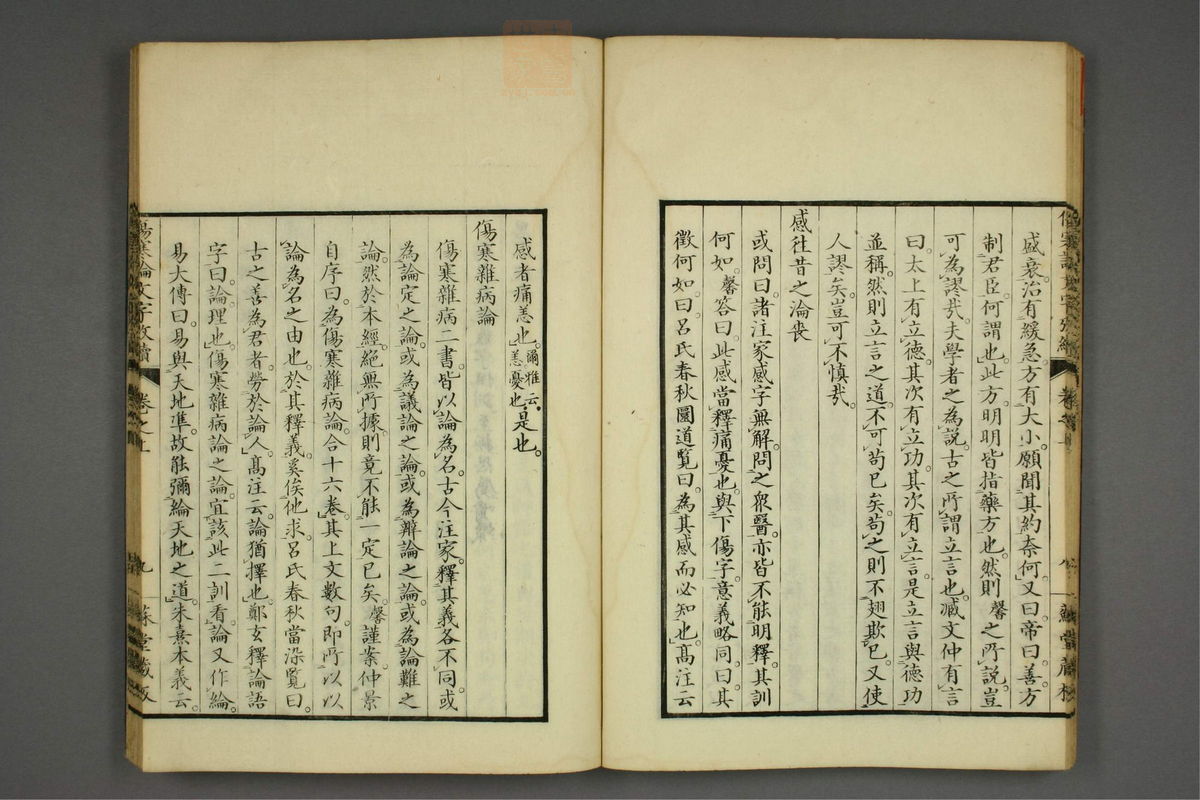 盛衰治有緩急方有大小願聞其約奈何又曰帝曰善方
制君臣何謂也此方明明皆指藥方也然則馨之所說豈
可為謬哉夫學者之為說古之所謂立言也臧文仲有言
曰太上有立德其次有立功其次有立言是立言與德功
並稱然則立言之道不可苟已矣苟之則不翅欺已又使
人謬矣豈可不慎哉
感往昔之淪喪
或問曰諸注家感字無解問之眾醫亦皆不能明釋其訓
何如馨答曰此感當釋痛憂也與下傷字意義略同曰其
徵何如曰呂氏春秋圜道覽曰為其感而必知也高注云
感者痛恙也爾雅云恙憂也是也
傷寒雜病論
傷寒雜病二書皆以論為名古今注家釋其義各不同或
為論定之論或為議論之論或為辨論之論或為論難之
論然於本經絕無所據則竟不能一定已矣馨謹案仲景
自序曰為傷寒雜病論合十六卷其上文數句即所以以
論為名之由也於其釋義奚俟他求呂氏春秋當染覽曰
古之善為君者勞於論人高注云論猶擇也鄭玄釋論語
字曰論理也傷寒雜病論之論宜該此二訓看論又作綸
易大傳曰易與天地準故能彌綸天地之道朱熹本義云
傷寒論文字攷續 卷之上 九 蘇堂藏板